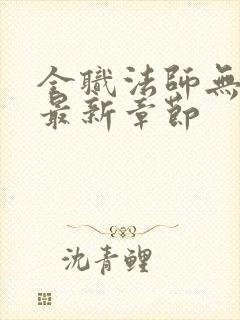 全職法師無
最新章節
沈青鯉